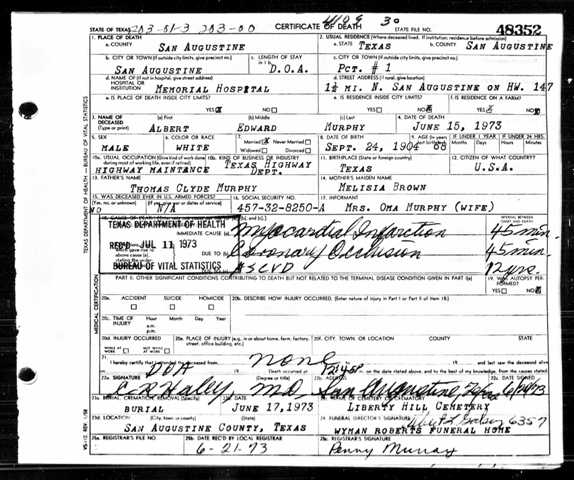 STATE OF TEXAS 203-01-3 203-00 CERTIFICATE OF DEATH STATE FILE NO. 48352
1. PLACE OF DEATH 2. USUAL RESIDENCE (Where deceased lived. If institution: residence before admission)
a. COUNTY SAN AUGUSTINE a. STATE TEXAS b. COUNTY SAN AUGUSTINE
b. CITY OR TOWN (If outside city limits, give precinct no.) c. LENGTH OF STAY c. CITY OR TOWN (If outside city limits, give precinct no.)
SAN AUGUSTINE D.O.A. PCT. # 1
d. NAME OF (If not in hospital, give street address) HOSPITAL OR INSTITUTION MEMORIAL HOSPITAL d. STREET ADDRESS (If rural, give location) 1½ MI. N. SAN AUGUSTINE ON HW. 147
e. IS PLACE OF DEATH INSIDE CITY LIMITS? YES NO e. IS RESIDENCE INSIDE CITY LIMITS? YES NO f. IS RESIDENCE ON A FARM? YES NO
3. NAME OF DECEASED (Type or print) (a) First (b) Middle (c) Last 4. DATE OF DEATH
ALBERT EDWARD MURPHY JUNE 15, 1973
5. SEX 6. COLOR OR RACE 7. Married Never Married Widowed Divorced 8. DATE OF BIRTH 9. AGE IF UNDER 1 YEAR IF UNDER 24 HRS.
MALE WHITE SEPT. 24, 1904 68
10a. USUAL OCCUPATION (Give kind of work done 10b. KIND OF BUSINESS OR INDUSTRY 11. BIRTHPLACE (State or foreign country) 12. CITIZEN OF WHAT COUNTRY?
HIGHWAY MAINTANCE TEXAS HIGHWAY DEPT. TEXAS U.S.A.
13. FATHER'S NAME 14. MOTHER'S MAIDEN NAME
THOMAS CLYDE MURPHY MELISIA BROWN
15. WAS DECEASED EVER IN U.S. ARMED FORCES? 16. SOCIAL SECURITY NO. 17. INFORMANT
NO N/A 457-32-8250-A MRS. OMA MURPHY (WIFE)
TEXAS DEPARTMENT OF HEALTH
REC'D JUL 11 1973
BUREAU OF VITAL STATISTICS
IMMEDIATE CAUSE (a) Myocardial Infarction 45 min.
DUE TO Coronary Occlusion 45 min.
ASCVD 12 yrs.
PART II. OTHER SIGNIFICANT CONDITIONS CONTRIBUTING TO DEATH BUT NOT RELATED TO THE TERMINAL DISEASE CONDITION GIVEN IN PART I(a) 19. WAS AUTOPSY PERFORMED? YES NO
20a. ACCIDENT SUICIDE HOMICIDE 20b. DESCRIBE HOW INJURY OCCURRED. (Enter nature of injury in Part I or Part II of item 18)
20c. TIME OF INJURY Hour Month Day Year a.m. p.m.
20d. INJURY OCCURRED WHILE AT WORK NOT WHILE AT WORK 20e. PLACE OF INJURY (e.g., in or about home, farm, factory, street, office building, etc.) 20f. CITY, TOWN, OR LOCATION COUNTY STATE
21. I hereby certify that I attended the deceased from DOA none
22a. SIGNATURE (Degree or title) 22b. ADDRESS
C R Haley MD San Augustine, Texas
23a. BURIAL, CREMATION, REMOVAL (Specify) 23b. DATE 23c. NAME OF CEMETERY OR CREMATORY
BURIAL JUNE 17, 1973 LIBERTY HILL CEMETERY
23d. LOCATION (City, town, or county) (State) 24. FUNERAL DIRECTOR'S SIGNATURE 6357
SAN AUGUSTINE COUNTY, TEXAS WYMAN ROBERTS FUNERAL HOME
25a. REGISTRAR'S FILE NO. 25b. DATE REC'D BY LOCAL REGISTRAR 25c. REGISTRAR'S SIGNATURE
6-21-73 Penny Murray
TEXAS DEPARTMENT OF HEALTH - BUREAU OF VITAL STATISTICS
MEDICAL CERTIFICATION